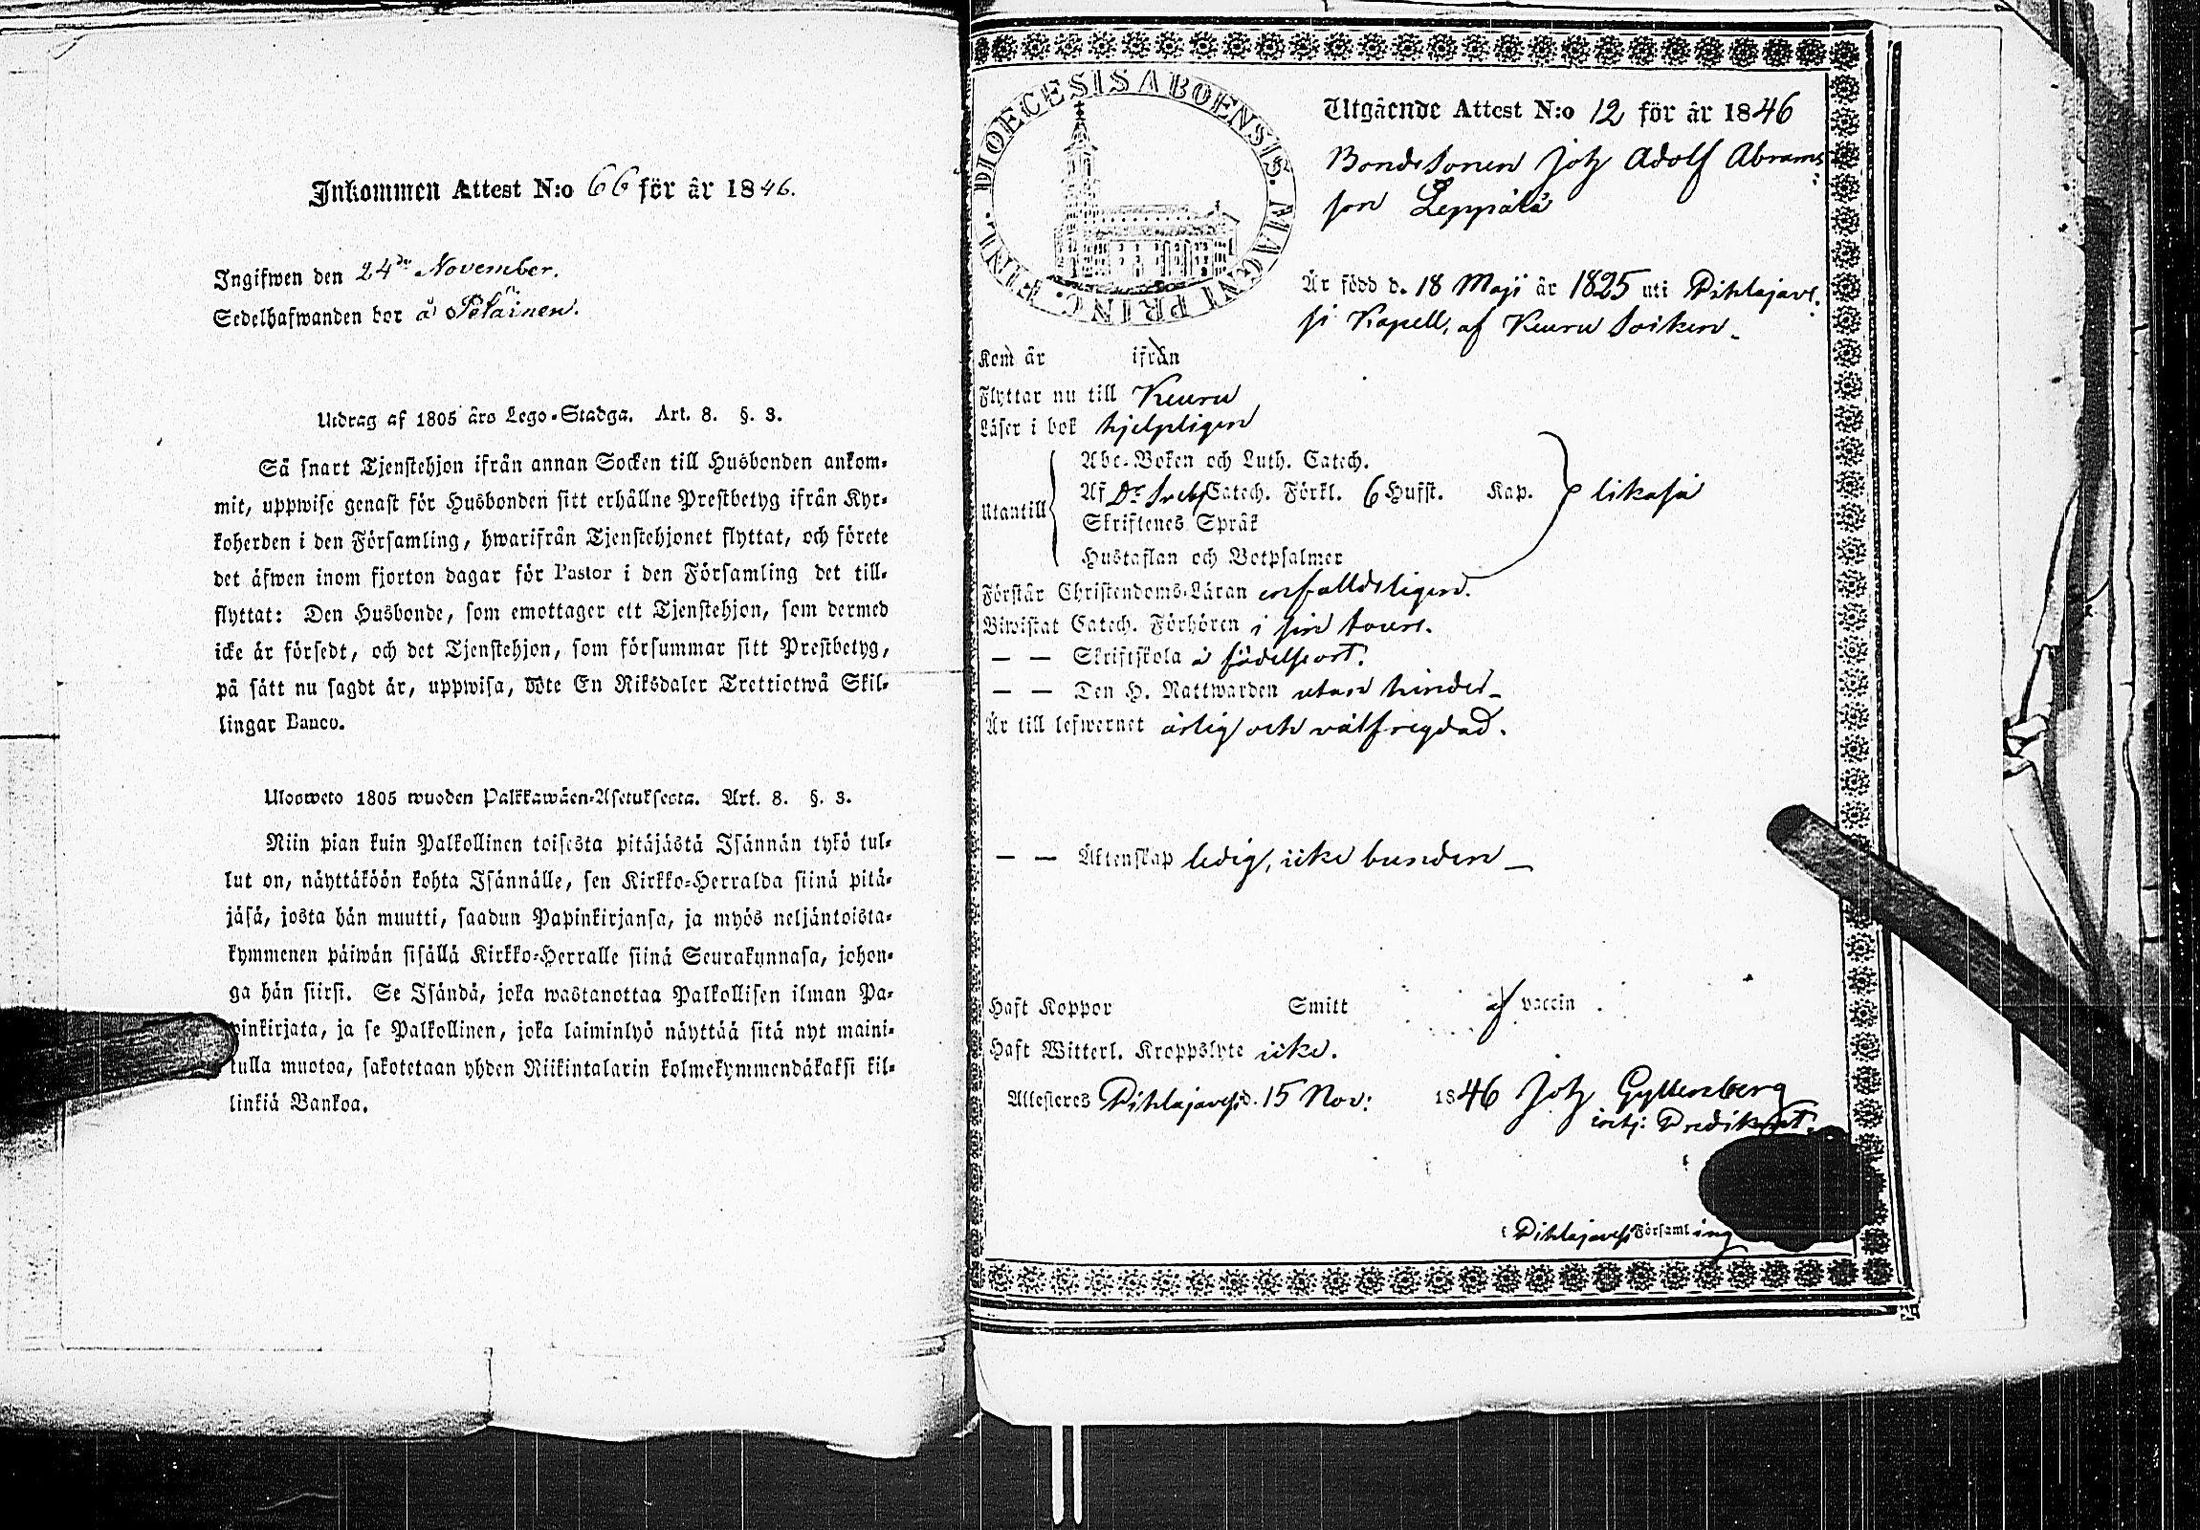 Inkommen Attest N:o 66 för år 1846.
Ingifwen den 24de November.
Sedelhafwanden bor å Pötäinen.
Utdrag af 1805 års Lego-Stadga. Art. 8. §. 3.
Så snart Tjenstehjon ifrån annan Socken till Husbonden ankom-
mit, uppwise genast för Husbonden sitt erhållne Prestbetyg ifrån Kyr-
koherden i den Församling, hwarifrån Tjenstehjonet flyttat, och förete
det äfwen inom fjorton dagar för Pastor i den Församling det till-
flyttat: Den Husbonde, som emottager ett Tjenstehjon, som dermed
icke är försedt, och det Tjenstehjon, som försummar sitt Prestbetyg,
på sätt nu sagdt är, uppwisa, böte En Riksdaler Trettiotwå Skil-
lingar Banco.
Ulosweto 1805 wuoden Palkkawäen-Asetuksesta. Art. 8. §. 3.
Niin pian kuin Palkollinen toisesta pitäjästä Isännän tykö tul-
lut on, näyttäköön kohta Isännälle, sen Kirkko-Herralda siinä pitä-
jäsä, josta hän muutti, saadun Papinkirjansa, ja myös neljäntoista-
kymmenen päiwän sisällä Kirkko-Herralle siinä Seurakunnasa, johon-
ga hän siirsi. Se Isändä, joka wastanottaa Palkollisen ilman Pa-
pinkirjata, ja se Palkollinen, joka laiminlyö näyttää sitä nyt maini-
tulla muotoa, sakotetaan yhden Riikintalarin kolmekymmendäkaksi kil-
linkiä Bankoa.
DIOECESIS ABOENSIS. MAGNI PRINC. FINL.
Utgående Attest N:o 12 för år 1846
Bondesonen Joh Adolf Abrams
son Leppälä
Är född d. 18 Maji år 1825 uti Pihlajave-
si Kapell, af Keuru Socken
Kom år ifrån
Flyttar nu till Keuru
Läser i bok hjelpligen
Abc-Boken och Luth. Catech.
Af Dr Sveb. Catech. Förkl. 6 Hufst. Kap. likaså
Utantill
Skriftenes Språk
Hustaflan och Botpsalmer
Förstår Christendoms-Läran enfalldeligen.
Biwistat Catech. Förhören i sin tour.
— — Skriftskola å födelseort.
— — Den H. Nattwarden utan hinder
Är till lefwernet ärlig och välfregdad.
— — Äktenskap ledig, icke bunden
Haft Koppor Smitt af vaccin
Haft Witterl. Kroppslyte icke.
Attesteres Pihlajavesi d. 15 Nov: 1846 Joh Gyllenberg
Predikant.
i Pihlajavesi Församling